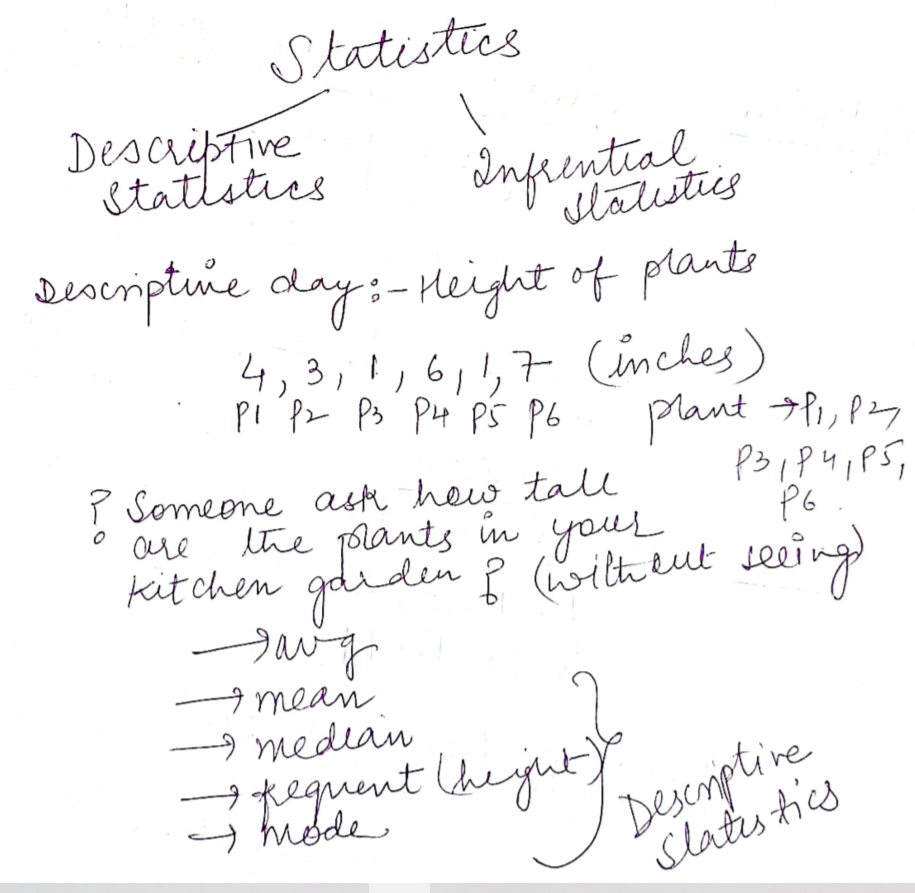 Statistics
Descriptive Infrential
Statistics Statistics
Descriptive day:- Height of plants
4, 3, 1, 6, 1, 7 (inches)
P1 P2 P3 P4 P5 P6 plant → P1, P2,
P3, P4, P5,
P6.
? Someone ask how tall
are the plants in your
kitchen garden ? (without seeing)
→ avg
→ mean
→ median
→ fequent (height)
→ mode
Descriptive
Statistics